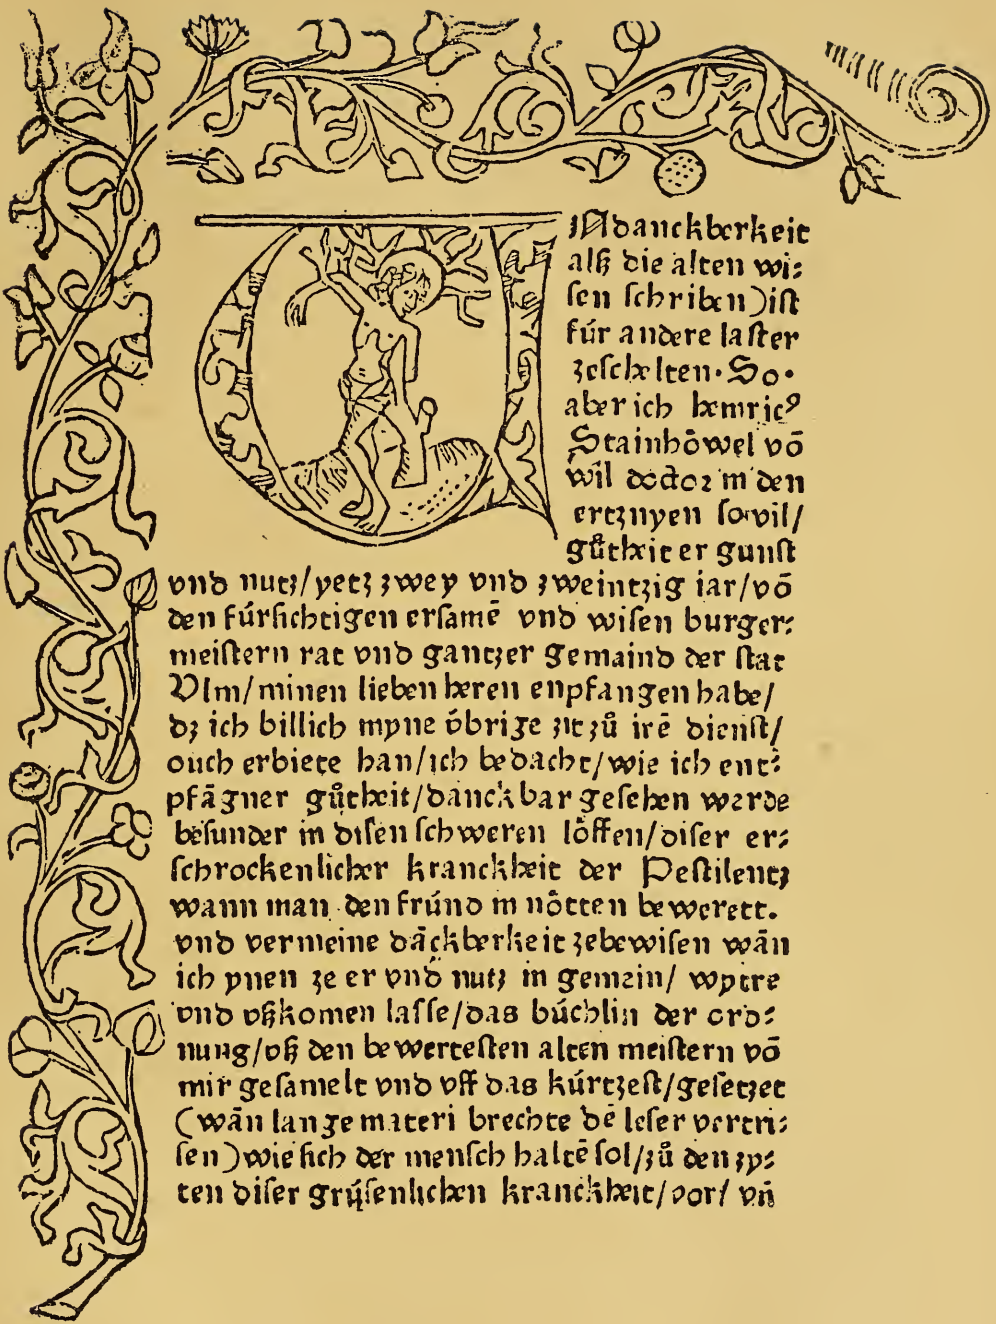 UNdanckberkeit
alß die alten wi:
sen schriben) ist
fúr andere laster
zeschelten. So.
aber ich heinricꝰ
Stainhöwel vō
wil doctor in den
ertznyen so vil/
gůtheit er gunst
vnd nutz/yetz zwey vnd zweintzig iar/vō
den fúrsichtigen ersamē vnd wisen burger:
meistern rat vnd gantzer gemaind der stat
Vlm/minen lieben heren enpfangen habe/
dz ich billich myne v́brige zit zů irē dienst/
ouch erbiete han/ich bedacht/wie ich ent:
pfāgner gůtheit/danckbar gesehen werde
besunder in disen schweren löffen/diser er:
schrockenlicher kranckheit der Pestilentz
wann man den frúnd in nötten bewerett.
vnd vermeine dāckberkeit zebewisen wān
ich ynen ze er vnd nutz in gemein/ wytre
vnd vßkomen lasse/das búchlin der ord:
nung/vß den bewertesten alten meistern vō
mir gesamelt vnd vff das kúrtzest/gesetzet
(wān lange materi brechte dē leser vertri:
sen) wie sich der mensch haltē sol/zů den zy:
ten diser grúsenlichen kranckheit/vor/ vn̄